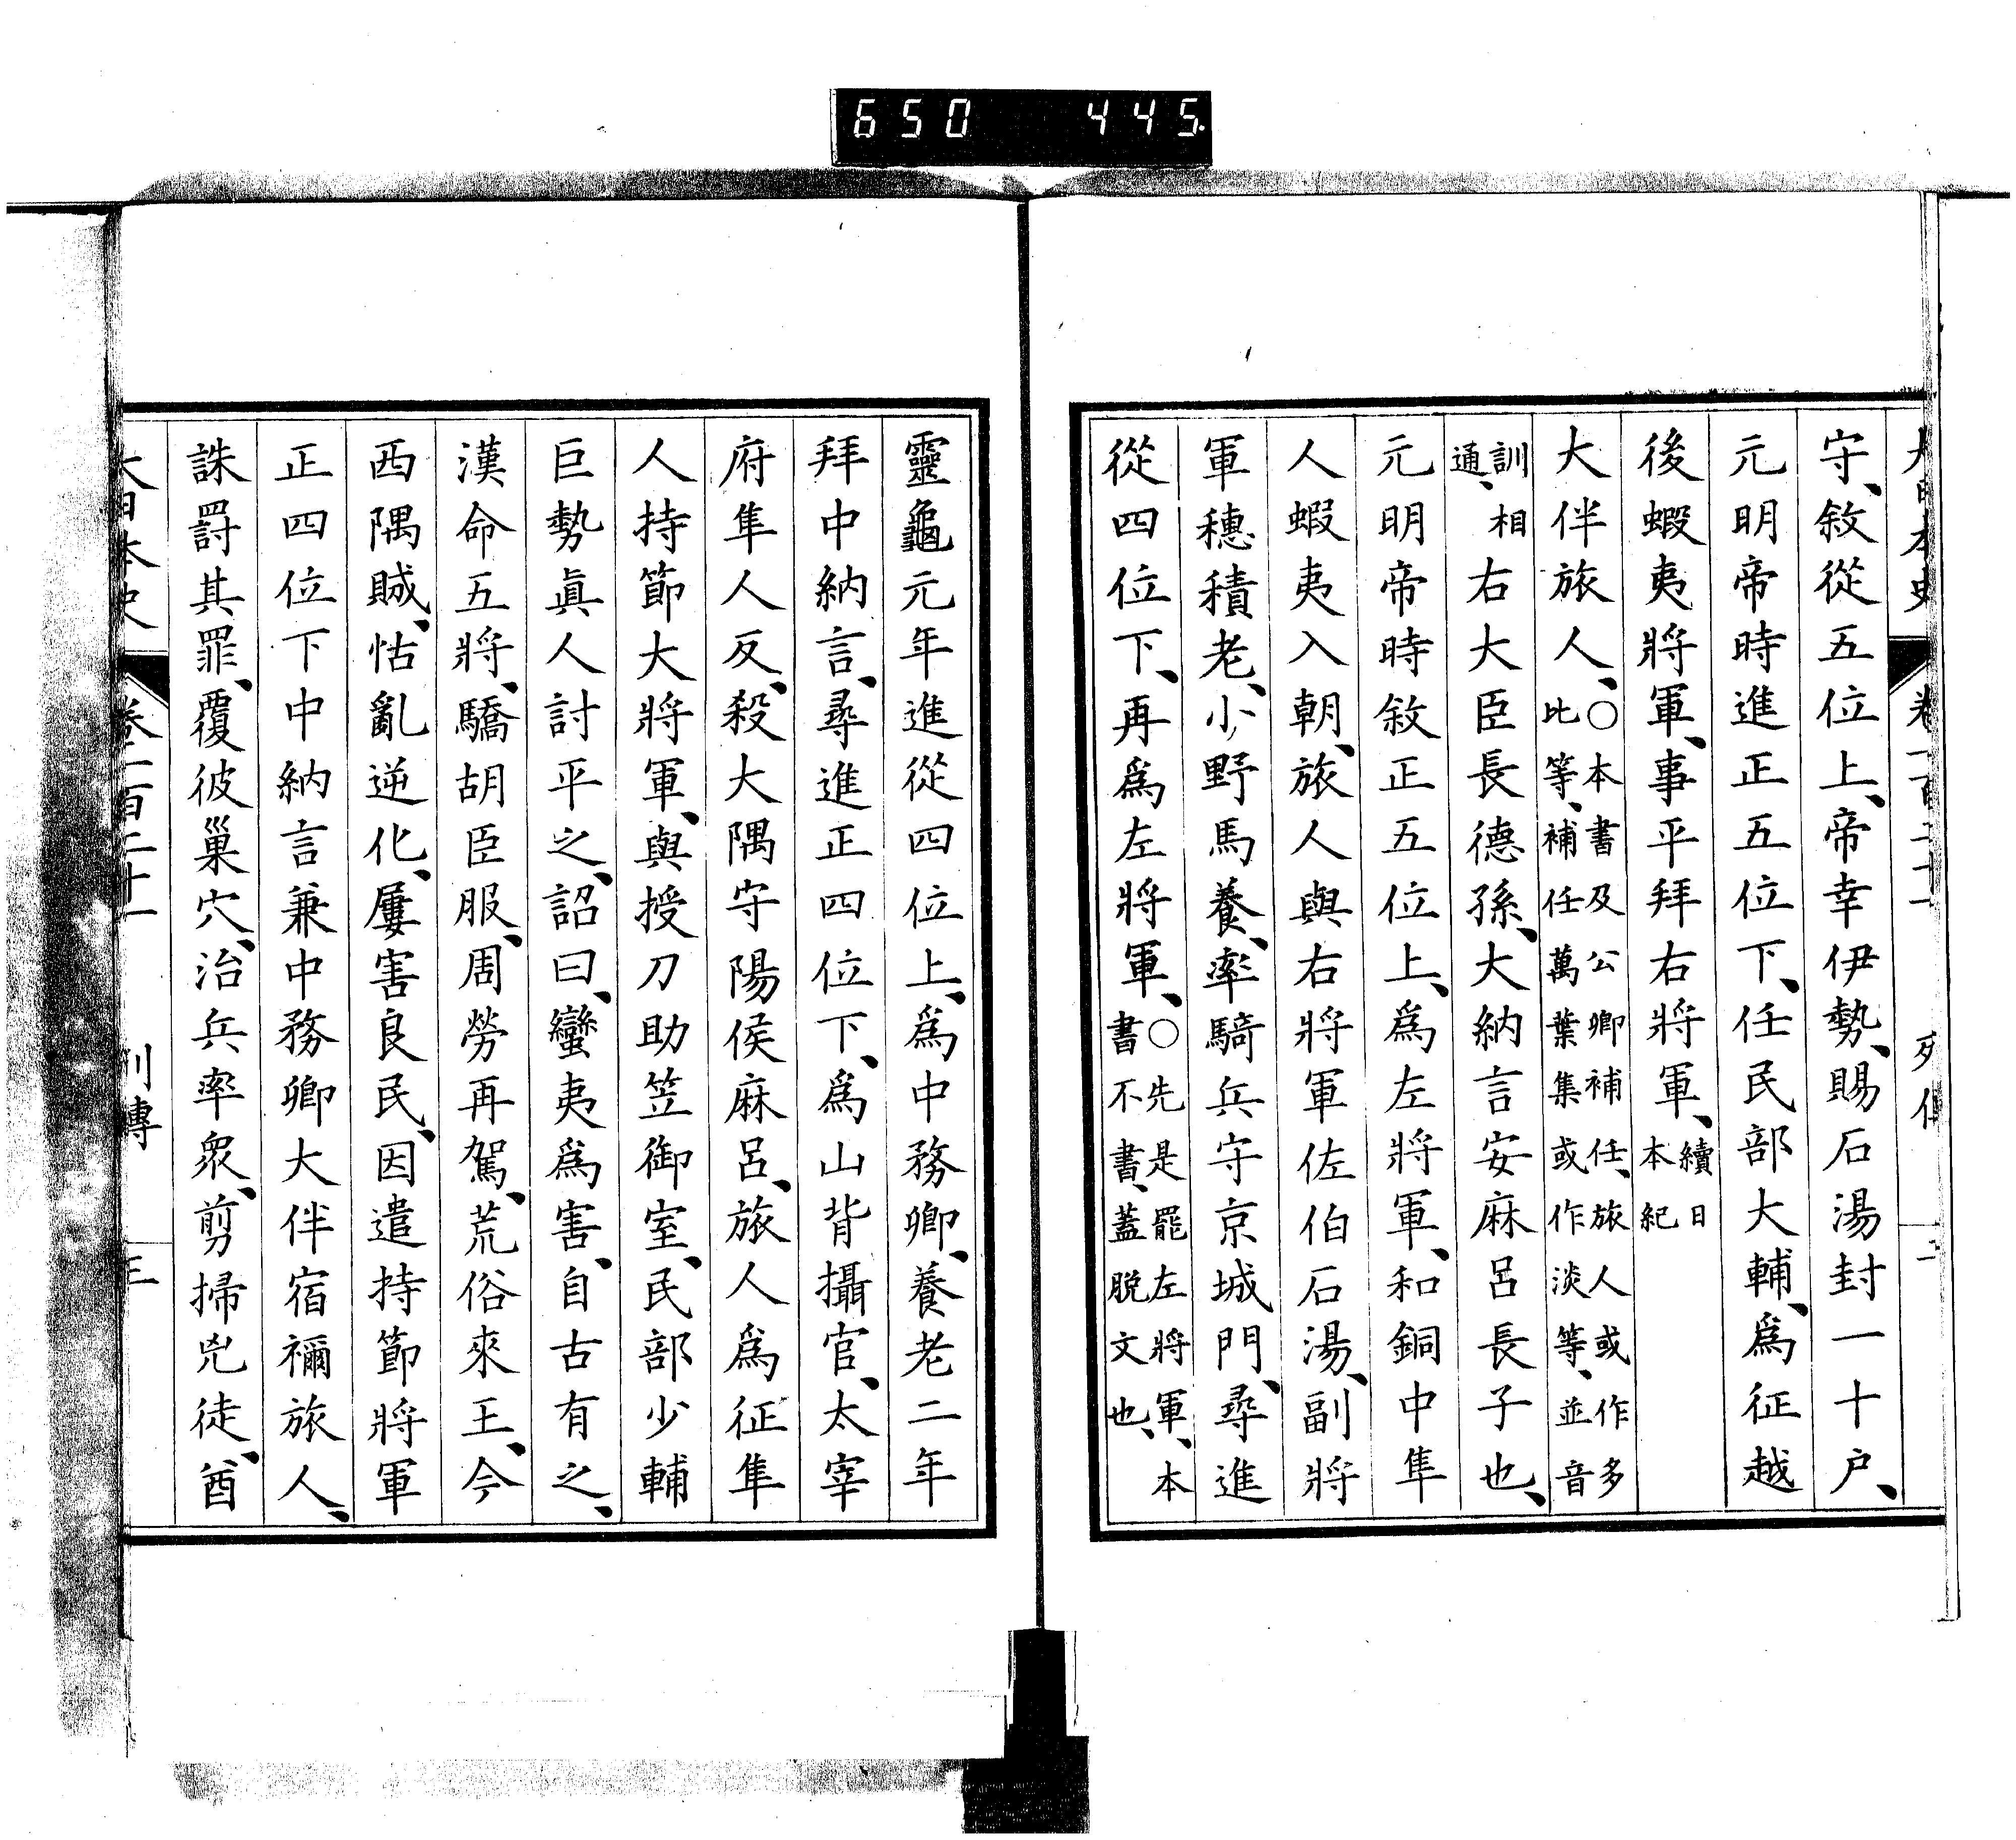 650 445
守、敘從五位上、帝幸伊勢、賜石湯封一十戶、
元明帝時進正五位下、任民部大輔、爲征越
後蝦夷將軍、事平拜右將軍、續日本紀
大伴旅人、○本書及公卿補任、旅人或作多比等、補任萬葉集或作淡等、並音
訓相通、右大臣長德孫、大納言安麻呂長子也、
元明帝時敘正五位上、爲左將軍、和銅中隼
人蝦夷入朝、旅人與右將軍佐伯石湯、副將
軍穗積老、小野馬養、率騎兵守京城門、尋進
從四位下、再爲左將軍、○先是罷左將軍、本書不書、蓋脱文也、
靈龜元年進從四位上、爲中務卿、養老二年
拜中納言、尋進正四位下、爲山背攝官、太宰
府隼人反、殺大隅守陽侯麻呂、旅人爲征隼
人持節大將軍、與授刀助笠御室、民部少輔
巨勢眞人討平之、詔曰、蠻夷爲害、自古有之、
漢命五將、驕胡臣服、周勞再駕、荒俗來王、今
西隅賊、怙亂逆化、屢害良民、因遣持節將軍
正四位下中納言兼中務卿大伴宿禰旅人、
誅罸其罪、覆彼巢穴、治兵率衆、剪掃兇徒、酋
大日本史 列傳 三